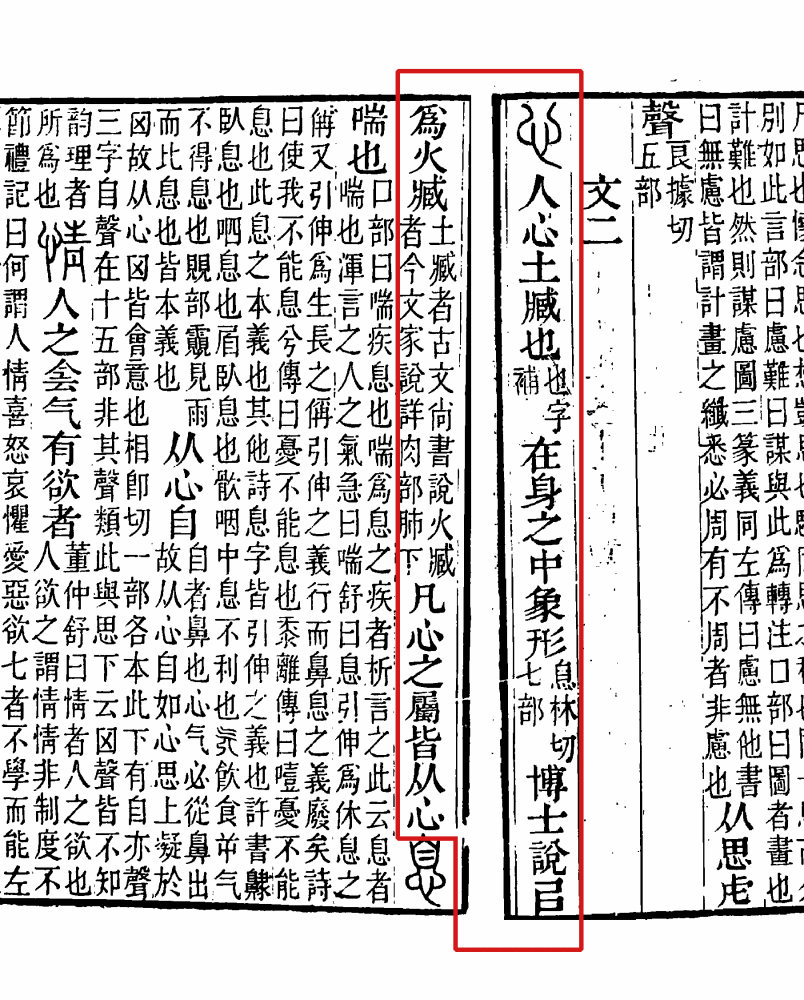 別如此言部曰慮難曰謀與此爲轉注口部曰圖者畫也
計難也然則謀慮圖三篆義同左傳曰慮無他書
曰無慮皆謂計畫之纖悉必周有不周者非慮也从思虍
聲良據切五部
文二
心人心土臧也也字補在身之中象形息林切七部博士說㠯
爲火臧土臧者古文尚書說火臧者今文家說詳肉部肺下凡心之屬皆从心息
喘也口部曰喘疾息也喘爲息之疾者析言之此云息者
喘也渾言之人之氣急曰喘舒曰息引伸爲休息之
偁又引伸爲生長之偁引伸之義行而鼻息之義廢矣詩
曰使我不能息兮傳曰憂不能息也黍離傳曰噎憂不能
息也此息之本義也其他詩息字皆引伸之義也許書
臥息也呬息也臥息也咽中息不利也㒫飲食屰气
不得息也覞部見雨而比息也皆本義也从心自自者鼻也心气必從鼻出
故从心自如心思上凝於
囟故从心囟皆會意也相卽切一部各本此下有自亦聲
三字自聲在十五部非其聲類此與思下云囟聲皆不知
韵理者所爲也情人之侌气有欲者董仲舒曰情者人之欲也
人欲之謂情情非制度不
節禮記曰何謂人情喜怒哀懼愛惡欲七者不學而能左